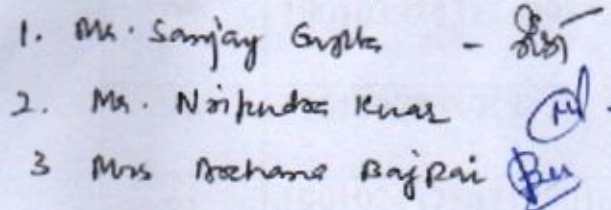 1. Mr. Sanjay Gupta -
2. Mr. Nripendra Kumar
3 Mrs Archana Bajpai